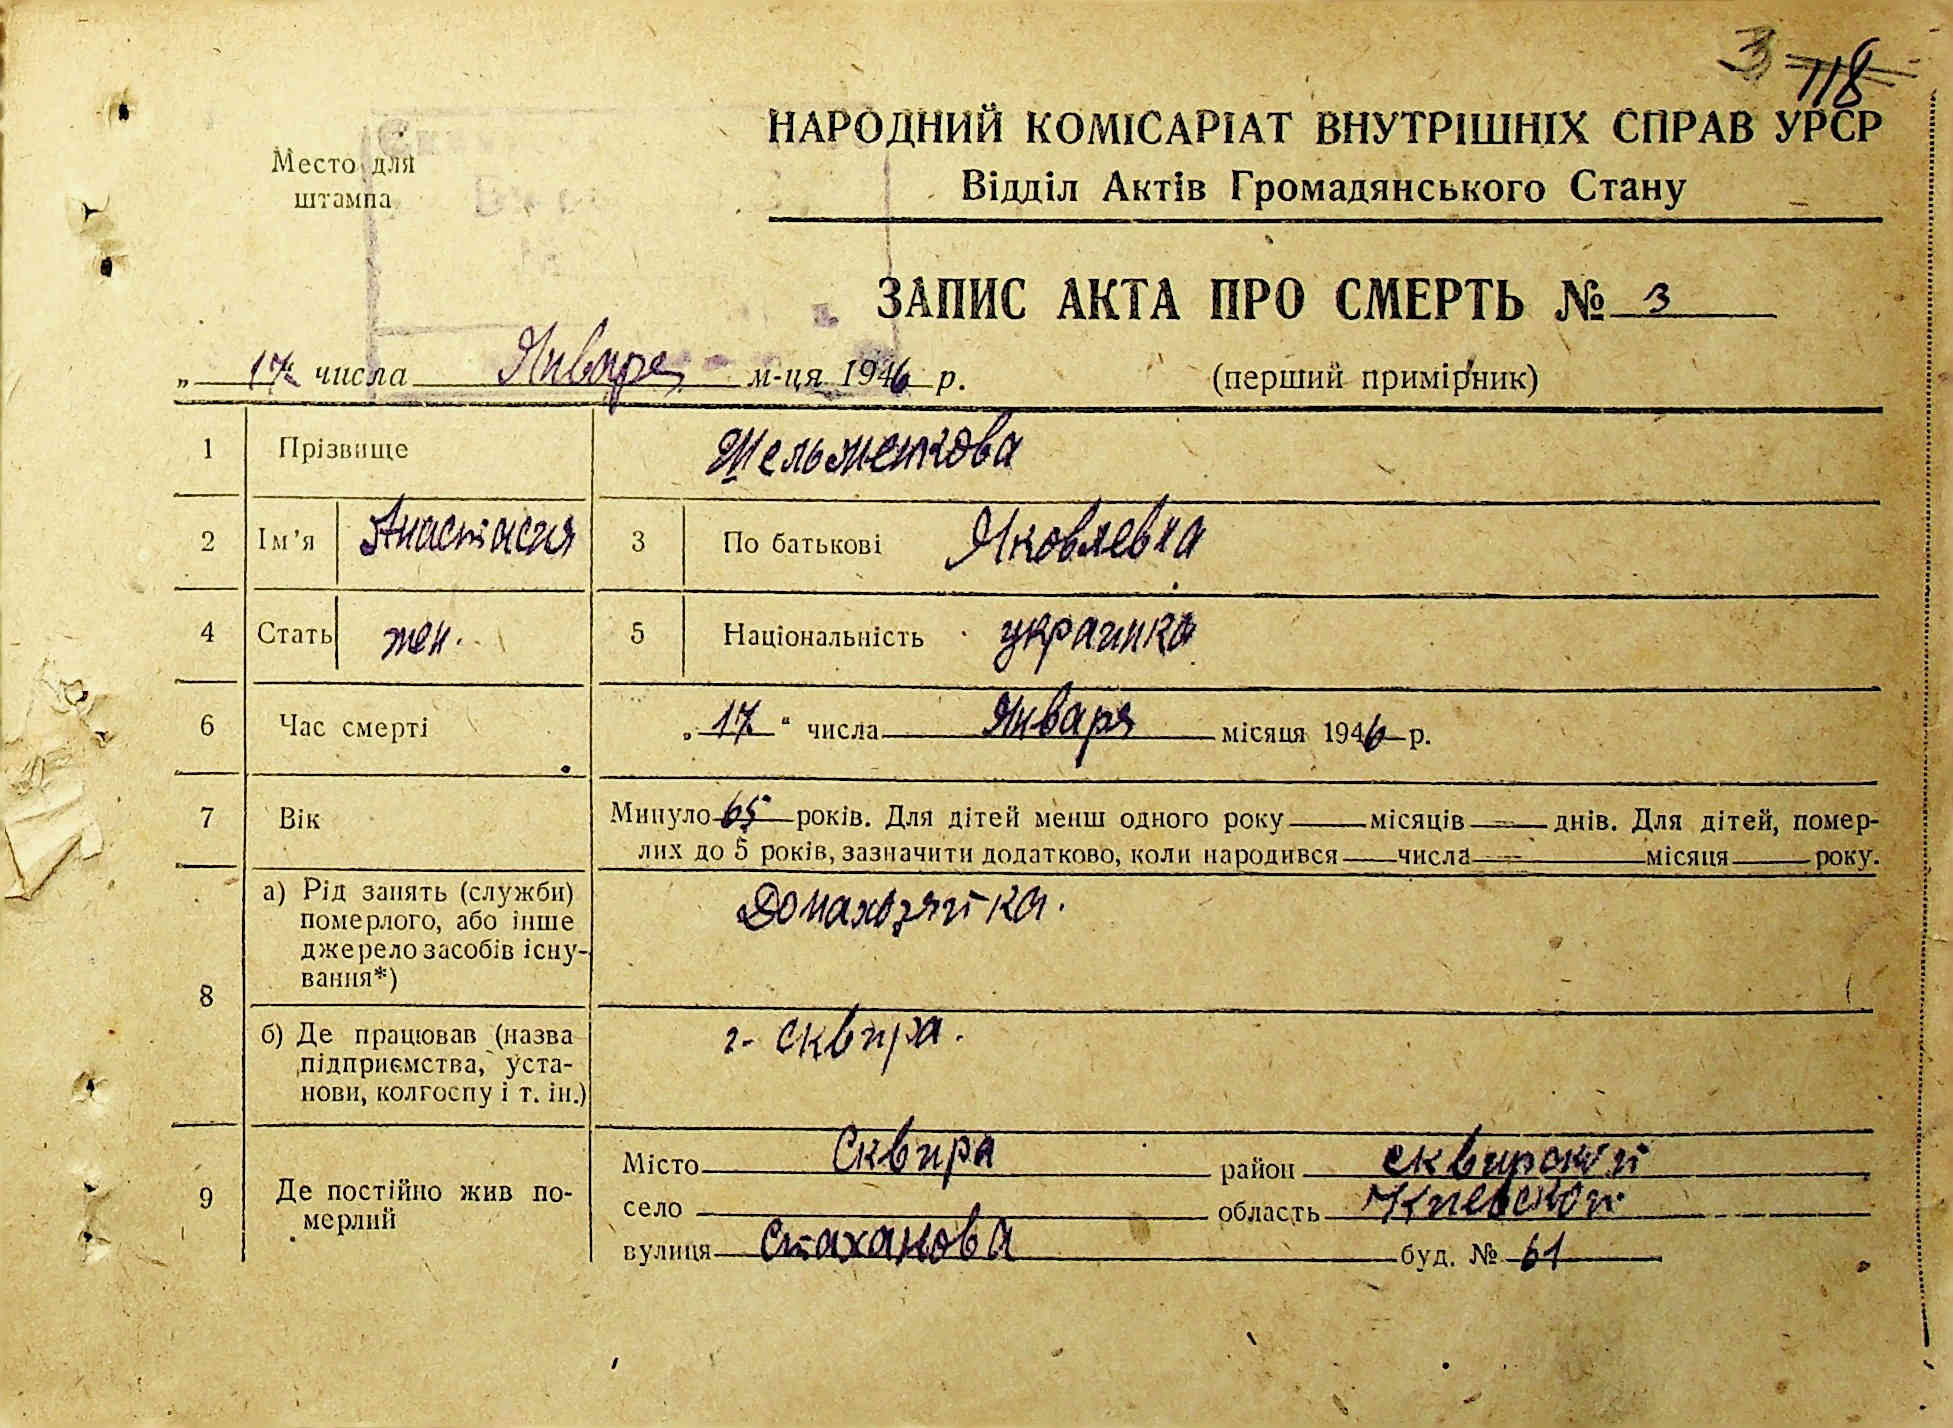 3 118
НАРОДНИЙ КОМІСАРІАТ ВНУТРІШНІХ СПРАВ УРСР
Место для
штампа
Відділ Актів Громадянського Стану
ЗАПИС АКТА ПРО СМЕРТЬ № 3
„ 17 числа Января м-ця 1946 р.
(перший примірник)
1 Прізвище Шельменкова
2 Ім'я Анастасия 3 По батькові Яковлевна
4 Стать жен. 5 Національність украинка
6 Час смерті „ 17 “ числа Января місяця 1946 р.
7 Вік Минуло 65 років. Для дітей менш одного року — місяців — днів. Для дітей, помер-
лих до 5 років, зазначити додатково, коли народився — числа — місяця — року.
8 а) Рід занять (служби)
померлого, або інше
джерело засобів існу-
вання*)
Домахозяйка.
б) Де працював (назва
підприємства, уста-
нови, колгоспу і т. ін.)
г. Сквира.
9 Де постійно жив по-
мерлий
Місто Сквира район Сквирский
село область Киевской
вулиця Стаханова буд. № 61